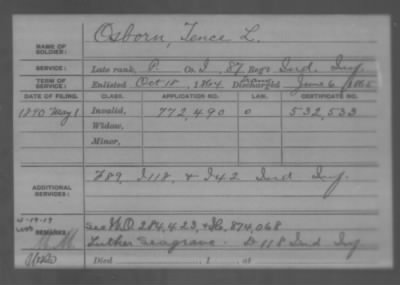 Osborn, Tence L.
NAME OF SOLDIER:
SERVICE: Late rank, P Co. I, 87 Reg't Ind. Inf.
TERM OF SERVICE: Enlisted Oct 18, 1864 Discharged June 6, 1865
DATE OF FILING. CLASS. APPLICATION NO. LAW. CERTIFICATE NO.
1890 May 1 Invalid, 772,490 0 532,533
Widow,
Minor,
ADDITIONAL SERVICES: F 89, I 118, & I 42 Ind Inf.
4-19-19
REMARKS: See W.O. 284,423, & 874,068
Luther Seagrave. D 118 Ind Inf
Died 1 at